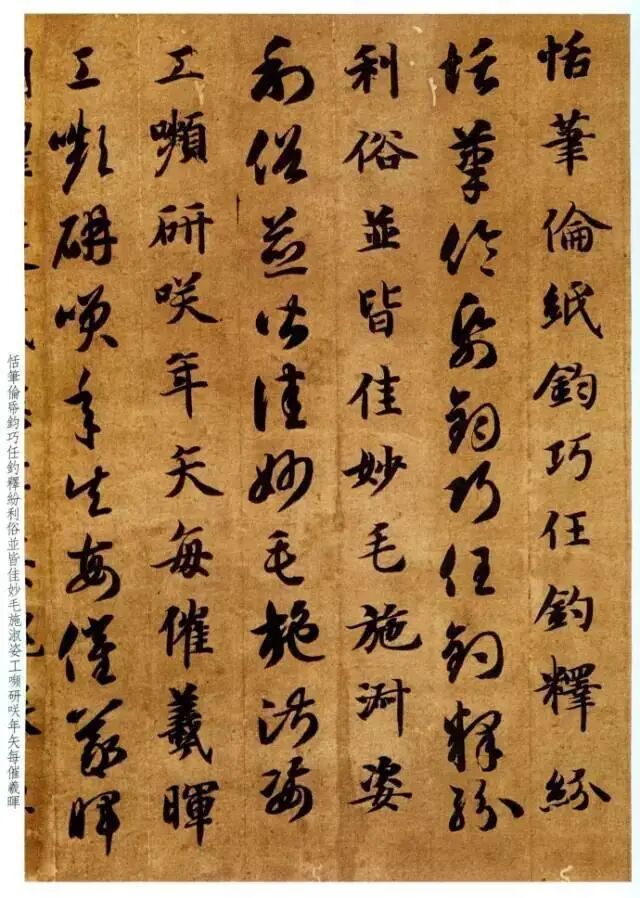 恬筆倫紙鈞巧任釣釋紛
恬筆倫帋鈞巧任釣釋紛
利俗並皆佳妙毛施淑姿
利俗並皆佳妙毛施淑姿
工嚬研咲年矢每催羲暉
工嚬研咲年矢每催羲暉
恬筆倫帋鈞巧任釣釋紛利俗並皆佳妙毛施淑姿工嚬研咲年矢每催羲暉